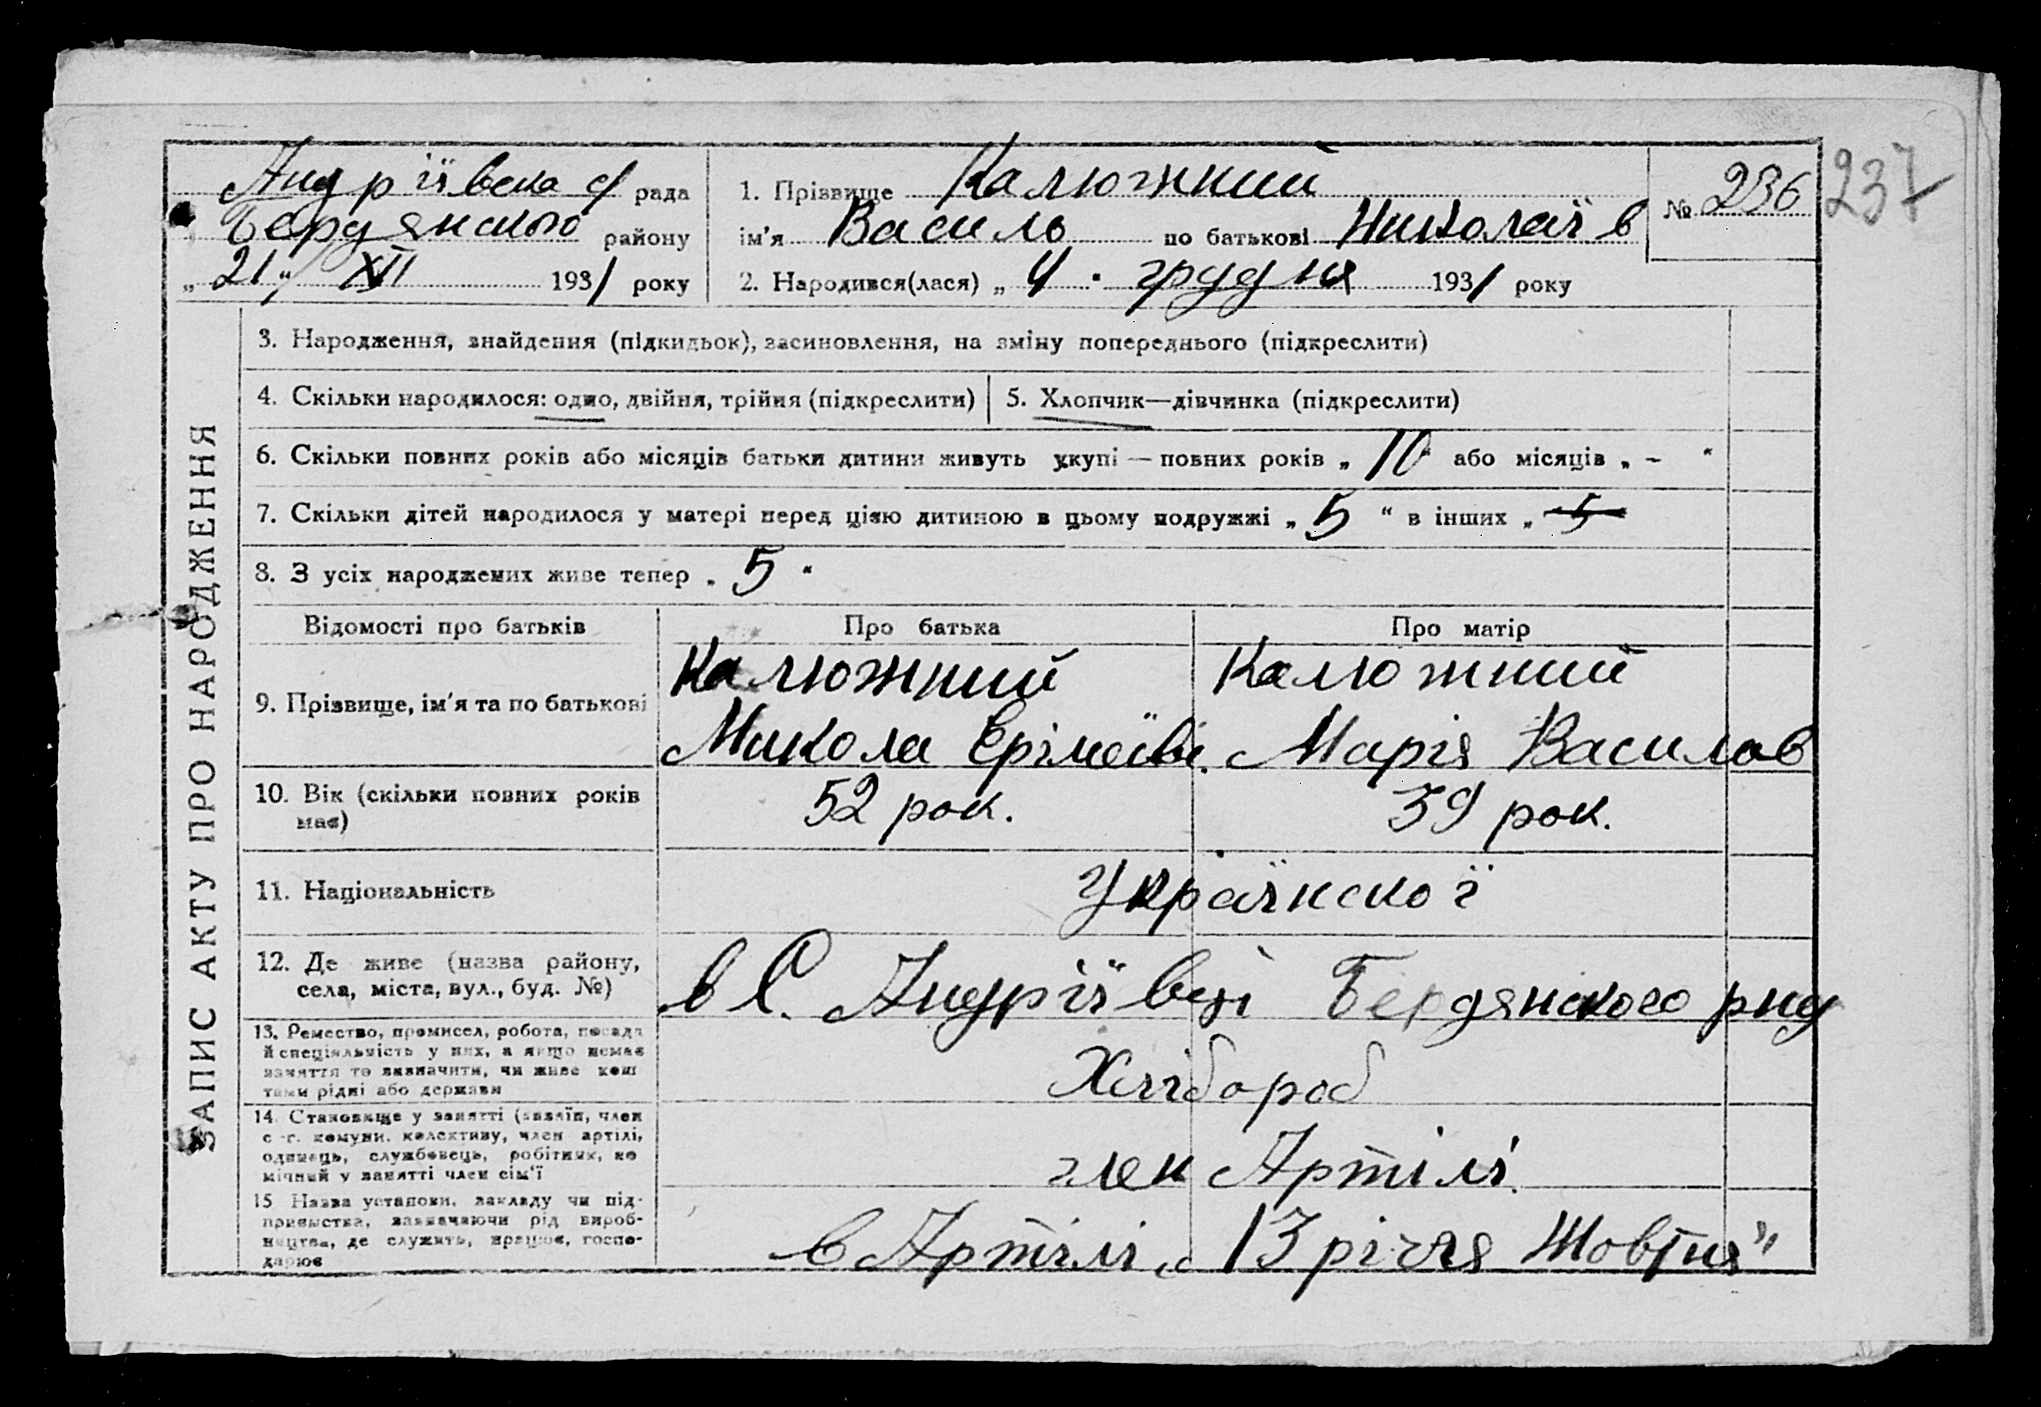 Андріївська с/ рада
Бердянського району
„21“/ XII 1931 року
1. Прізвище Калюжний
ім'я Василь по батькові Николаїв
2. Народився(лася) „4. грудня 1931 року
№ 236
237
ЗАПИС АКТУ ПРО НАРОДЖЕННЯ
3. Народження, знайдення (підкидьок), засиновлення, на зміну попереднього (підкреслити)
4. Скільки народилося: одно, двійня, трійня (підкреслити)
5. Хлопчик—дівчинка (підкреслити)
6. Скільки повних років або місяців батьки дитини живуть укупі — повних років „10“ або місяців „ – “
7. Скільки дітей народилося у матері перед цією дитиною в цьому подружжі „5“ в інших „ 5
8. З усіх народжених живе тепер „5“
Відомості про батьків Про батька Про матір
9. Прізвище, ім'я та по батькові
Калюжний
Микола Єрімеїві.
Калюжний
Марія Василов
10. Вік (скільки повних років
має)
52 рок.
39 рок.
11. Національність
Українскої
12. Де живе (назва району,
села, міста, вул., буд. №)
в С. Андріївці Бердянского рну
13. Ремество, промисел, робота, посада
й спеціяльність у них, а якщо немає
заняття то зазначити, чи живе кош
тами рідні або держави
Хлібороб
14. Становище у занятті (хазяїн, член
с.-г. комуни, колективу, член артілі,
одинець, службовець, робітник, по
мічний у занятті член сім'ї
член Артілі.
15 Назва установи, закладу чи під-
приємства, зазначаючи рід вироб-
ництва, де служить, працює, госпо-
дарює
в Артілі „13 річчя Жовтня"